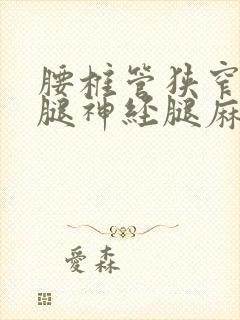 腰椎管狭窄
腿神经腿麻
爱森